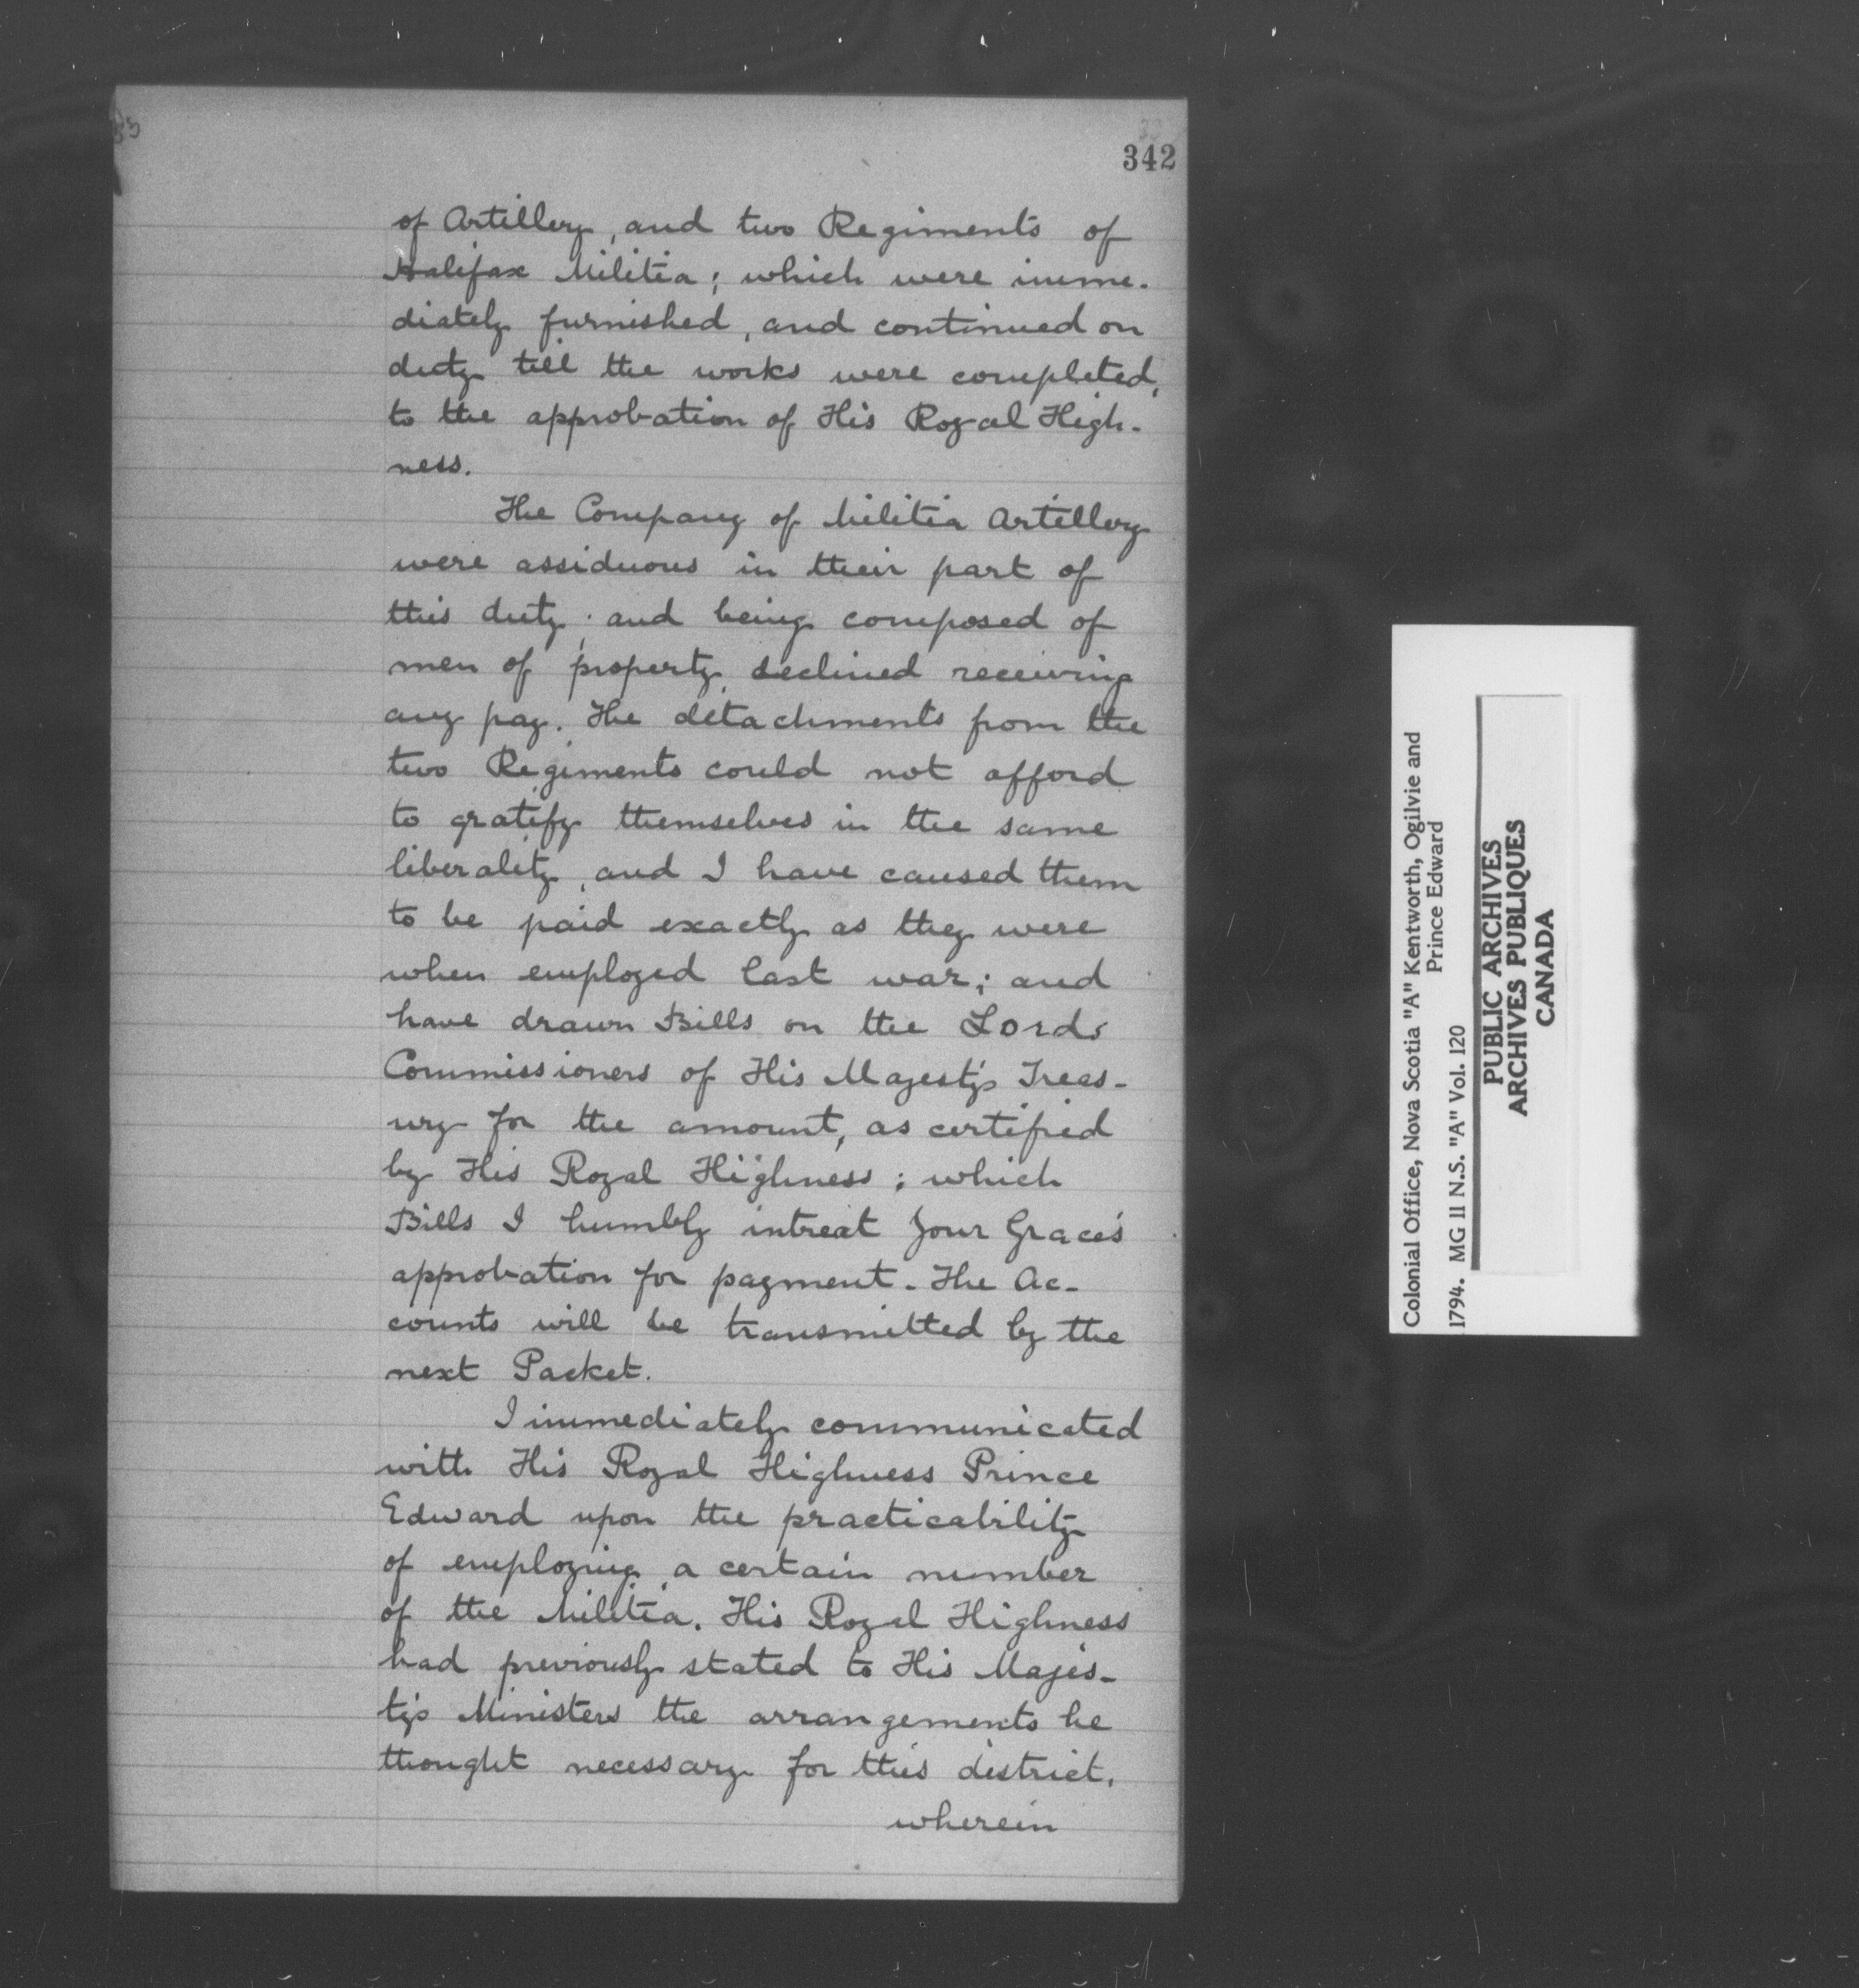 342
of Artillery, and two Regiments of
Halifax Militia; which were imme-
diately furnished, and continued on
duty till the works were completed,
to the approbation of His Royal High-
ness.
The Company of Militia Artillery
were assiduous in their part of
this duty; and being composed of
men of property, declined receiving
any pay. The detachments from the
two Regiments could not afford
to gratify themselves in the same
liberality, and I have caused them
to be paid exactly as they were
when employed last war; and
have drawn Bills on the Lords
Commissioners of His Majesty's Treas-
ury for the amount, as certified
by His Royal Highness; which
Bills I humbly intreat Your Grace's
approbation for payment. The Ac-
counts will be transmitted by the
next Packet.
I immediately communicated
with His Royal Highness Prince
Edward upon the practicability
of employing a certain number
of the Militia. His Royal Highness
had previously stated to His Majes-
ty's Ministers the arrangements he
thought necessary for this district,
wherein
Colonial Office, Nova Scotia "A" Kentworth, Ogilvie and
Prince Edward
1794. MG 11 N.S. "A" Vol. 120
PUBLIC ARCHIVES
ARCHIVES PUBLIQUES
CANADA